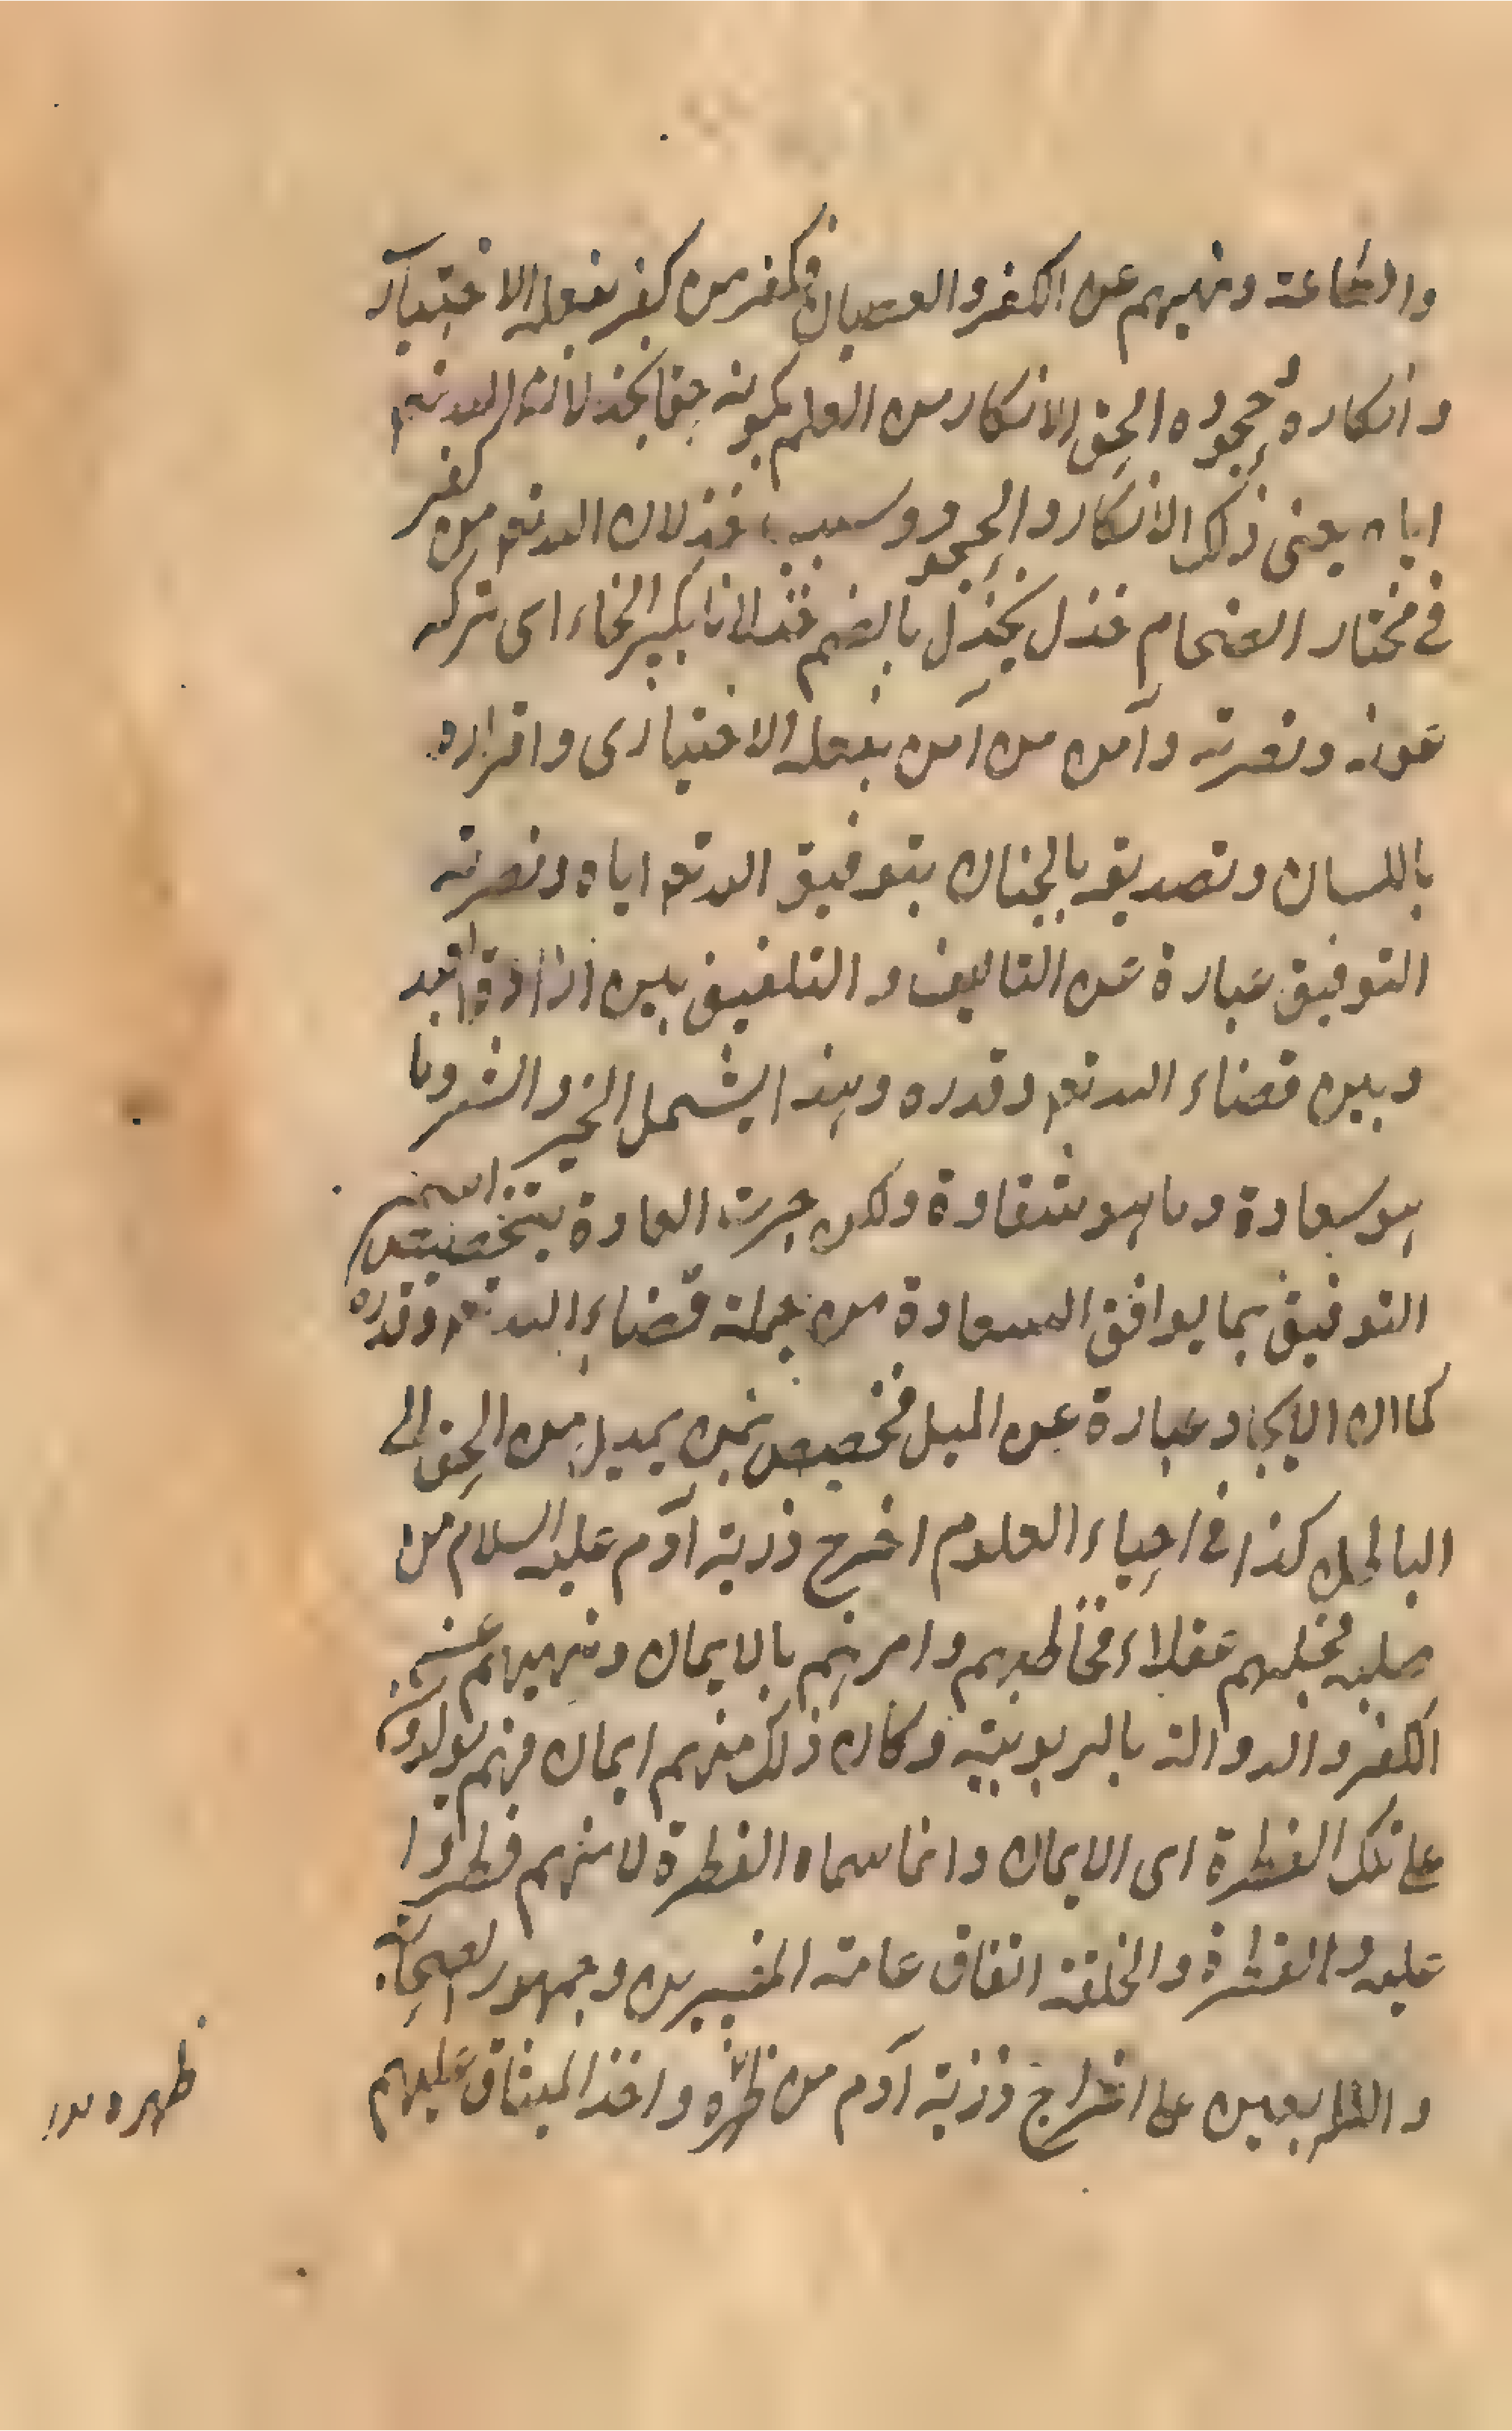 والطاعة ونهيهم عن الكفر والعصيان فكفر من كفر بفعله الاختيارى
وانكاره وجحوده الحق الانكار من العلم بكونه حقا بخذلان الله تعم
اياه يعنى ذلك الانكار والجحود وسببه خذلان الله تعم من كفر
فى مختار الصحاح خذل يخذل بالضم خذلانا بكسر الخاء اى ترك
عونه ونصرته وآمن من آمن بفعله الاختيارى واقراره
باللسان وتصديقه بالجنان بتوفيق الله تعم اياه ونصرته
التوفيق عبارة عن التاليف والتلفيق بين ارادة العبد
وبين قضاء الله تعم وقدره وهذا يشمل الخير والشر وما
هو سعادة وما هو شقاوة ولكن جرت العادة بتخصيص اسم
التوفيق بما يوافق السعادة من جملة قضاء الله تعم وقدره
كما ان الالحاد عبارة عن الميل فخصص بمن يميل من الحق الى
الباطل كذا فى احياء العلوم اخرج ذرية آدم عليه السلام من
صلبه فجعلهم عقلاء فخاطبهم وامرهم بالايمان ونهيهم عن
الكفر والدوالة بالربوبية وكان ذلك منهم ايمان فهم يولدون
على تلك الفطرة اى الايمان وانما سماه الفطرة لانهم فطروا
عليه والفطرة والخلقة اتفاق عامة المفسرين وجمهور الصحابة
والتابعين على اخراج ذرية آدم من ظهره واخذ الميثاق عليهم
ظهره